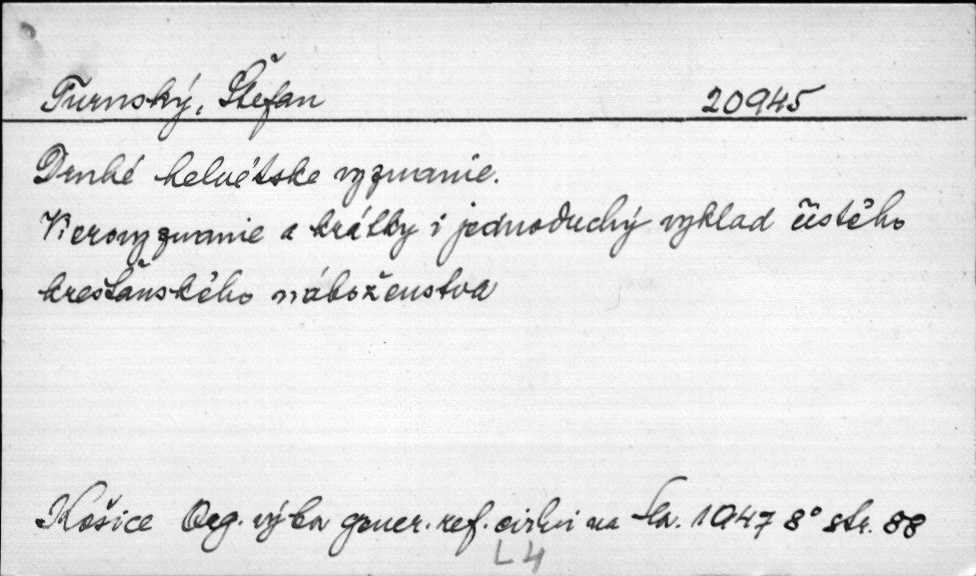 Turnský, Štefan 20945
Druhé helvétske vyznanie.
Vierovyznanie a krátky i jednoduchý výklad čistého
kresťanského náboženstva
Košice Org. výbor gener. ref. cirkvi na Slov. 1947 8° str. 88
L 4